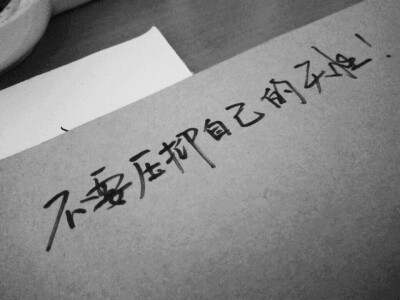 不要压抑自己的天性！